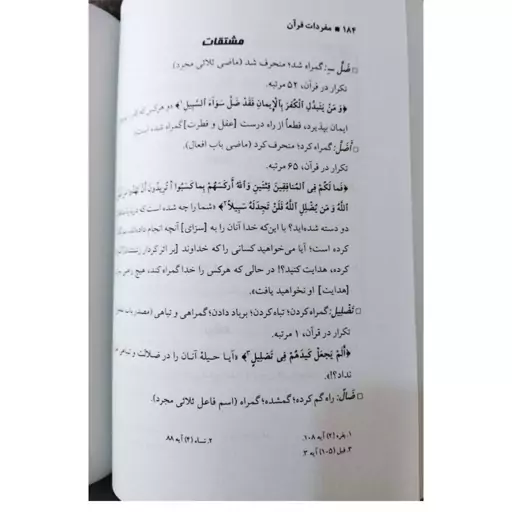 ۱۸۴ ■ مفردات قرآن
مشتقات
□ ضَلَّ ـِ: گمراه شد؛ منحرف شد (ماضی ثلاثی مجرد)
تکرار در قرآن، ۵۲ مرتبه.
﴿وَ مَنْ يَتَبَدَّلِ الْكُفْرَ بِالْإِيمَانِ فَقَدْ ضَلَّ سَوَاءَ السَّبِيلِ۱﴾ «و هرکس که
ایمان بپذیرد، قطعاً از راه درست [عقل و فطرت] گمراه شده است.
□ أَضَلَّ: گمراه کرد؛ منحرف کرد (ماضی باب افعال).
تکرار در قرآن، ۶۵ مرتبه.
﴿فَمَا لَكُمْ فِى الْمُنَافِقِينَ فِئَتَيْنِ وَ اللَّهُ أَرْكَسَهُمْ بِمَا كَسَبُوا أَتُرِيدُونَ أَنْ تَهْدُوا
اللَّهُ وَ مَنْ يُضْلِلِ اللَّهُ فَلَنْ تَجِدَ لَهُ سَبِيلاً۲﴾ «شما را چه شده است که درباره
دو دسته شده‌اید؟ با این‌که خدا آنان را به [سزای] آنچه انجام داده‌اند
کرده است؛ آیا می‌خواهید کسانی را که خداوند [بر اثر کردار
کرده، هدایت کنید؟! در حالی که هرکس را خدا گمراه کند، هیچ راهی
[هدایت] او نخواهید یافت».
□ تَضْلِیل: گمراه کردن؛ تباه کردن؛ برباد دادن؛ گمراهی و تباهی (مصدر باب
تکرار در قرآن، ۱ مرتبه.
﴿أَلَمْ يَجْعَلْ كَيْدَهُمْ فِى تَضْلِيلٍ۳﴾ «آیا حیلهٔ آنان را در ضلالت و تباهی
نداد؟!».
□ ضَالّ: راه گم کرده؛ گمشده؛ گمراه (اسم فاعل ثلاثی مجرد).
۱. بقره (۲) آیه ۱۰۸.
۲. نساء (۴) آیه ۸۸
۳. فیل (۱۰۵) آیه ۲.